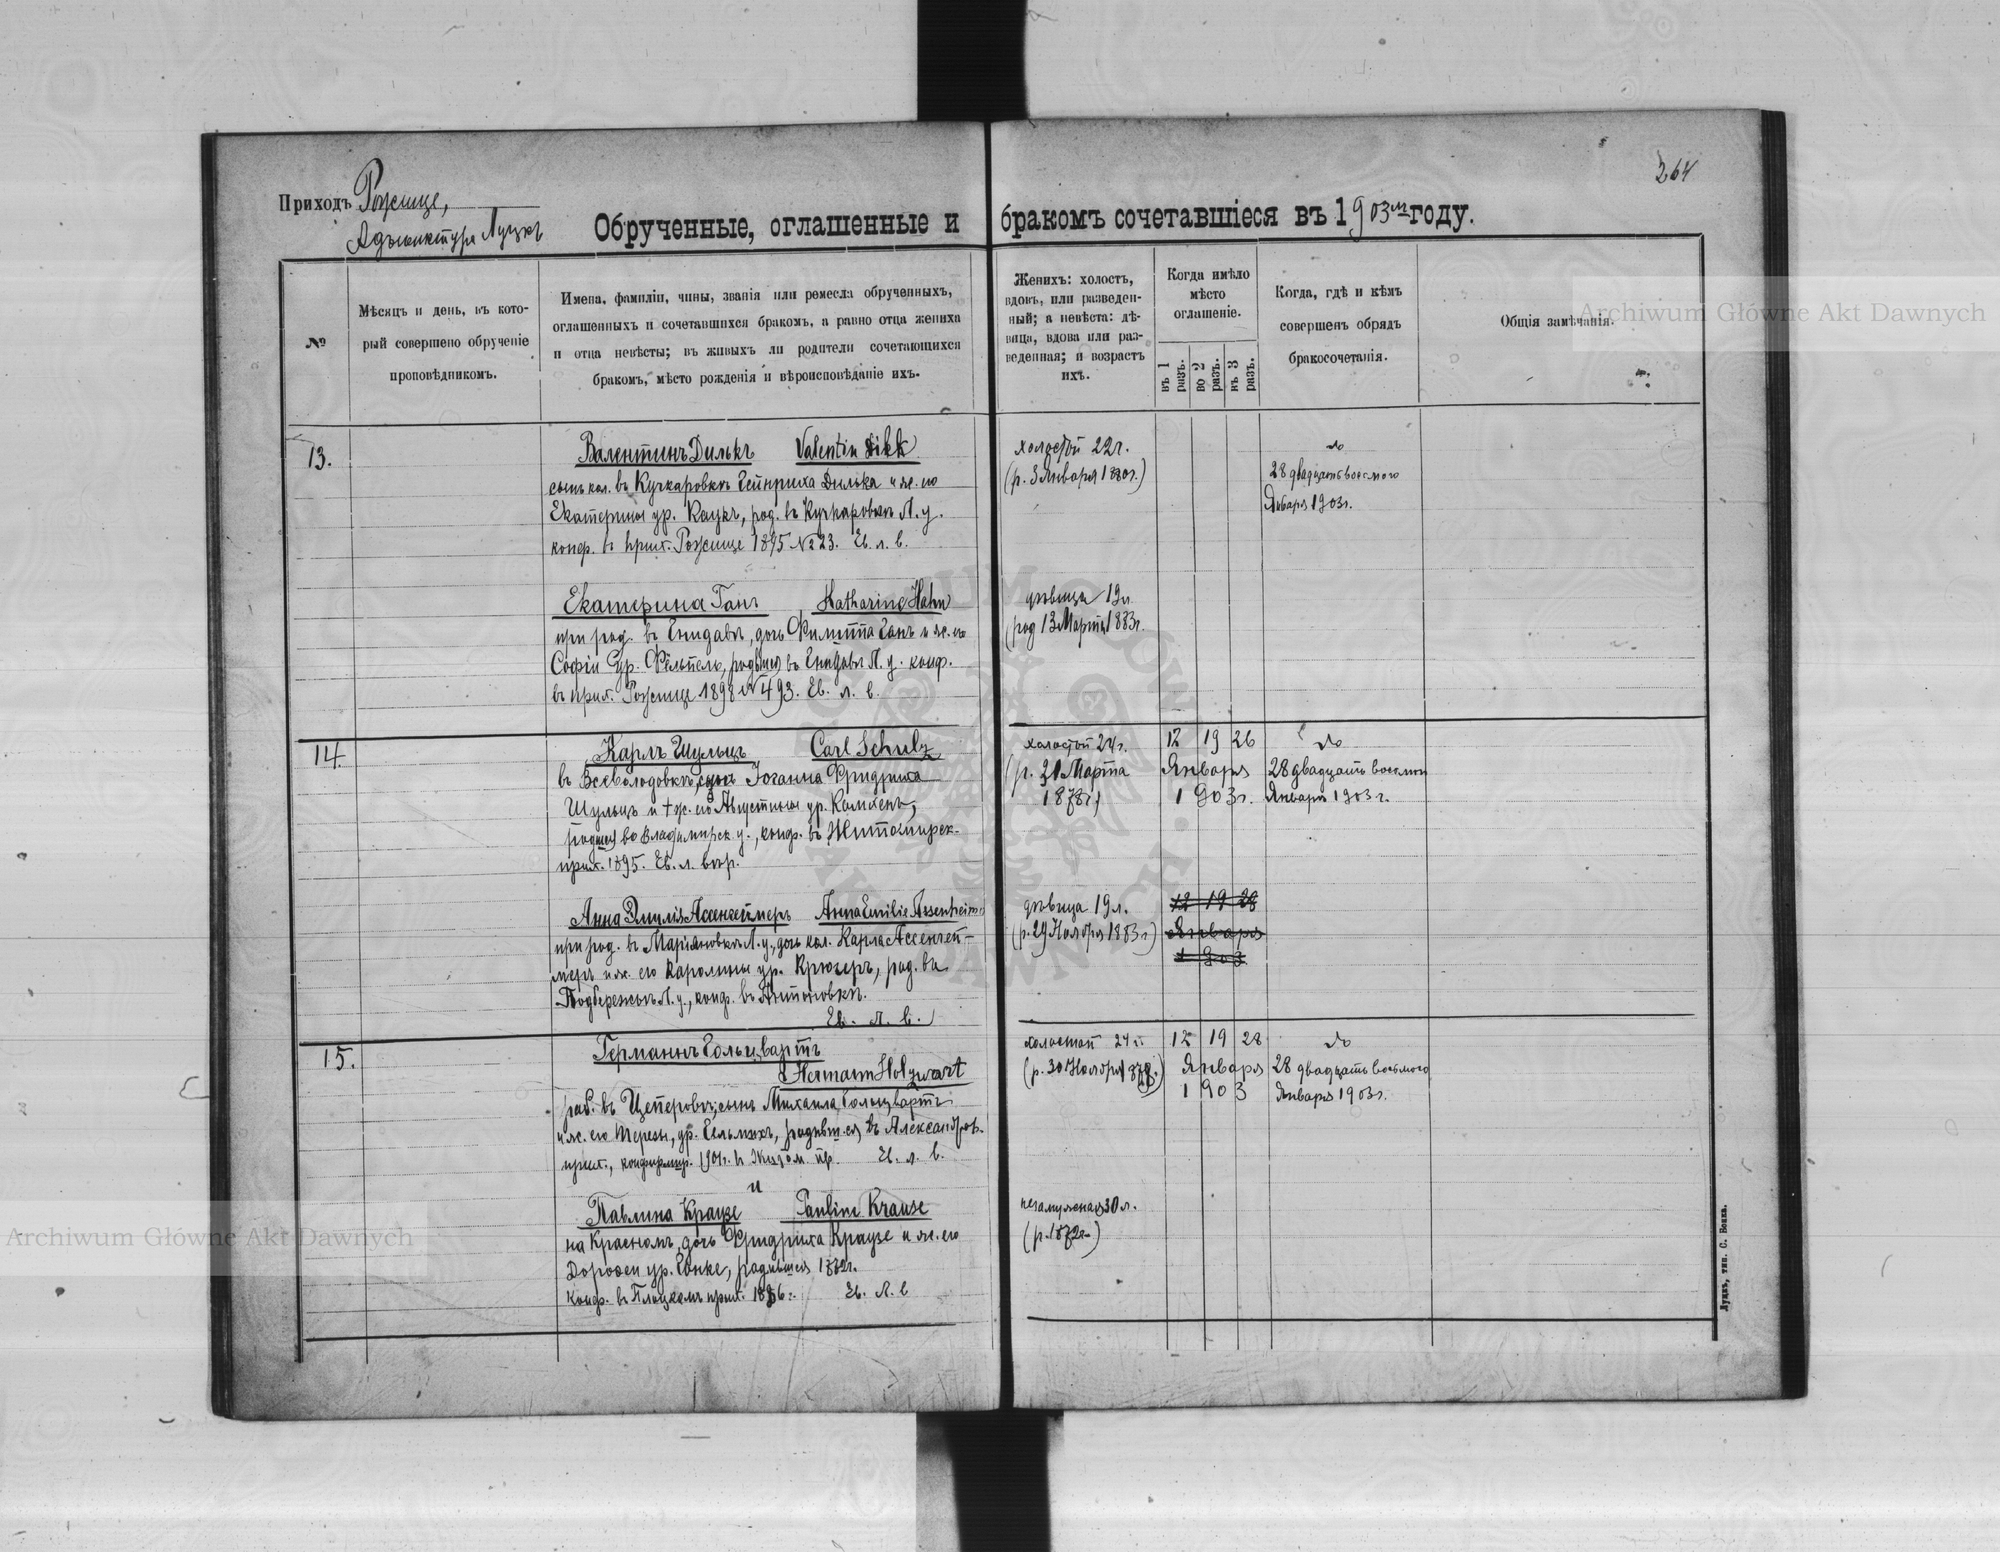 264
Приходъ Рожище,
Адъюнктура Луцкъ
Обрученные, оглашенные и бракомъ сочетавшіеся въ 1903м году.
№
Мѣсяцъ и день, въ кото-
рый совершено обрученіе
проповѣдникомъ.
Имена, фамиліи, чины, званія или ремесла обрученныхъ,
оглашенныхъ и сочетавшихся бракомъ, а равно отца жениха
и отца невѣсты; въ живыхъ ли родители сочетающихся
бракомъ, мѣсто рожденія и вѣроисповѣданіе ихъ.
Женихъ: холостъ,
вдовъ, или разведен-
ный; а невѣста: дѣ-
вица, вдова или раз-
веденная; и возрастъ
ихъ.
Когда имѣло
мѣсто
оглашеніе.
въ 1 разъ.
во 2 разъ.
въ 3 разъ.
Когда, гдѣ и кѣмъ
совершенъ обрядъ
бракосочетанія.
Общія замѣчанія.
13.
Валентинъ Дилькъ Valentin Dikk
сынъ кол. въ Кучкаровкѣ Гейнриха Дилька и ж. его
Екатерины ур. Кауцъ, род. въ Кучкаровкѣ Л. у.
конф. въ прих. Рожище 1895 № 23. Ев. л. в.
холостой 22 г.
(р. 3 Января 1880 г.)
do
28 двадцать восьмого
Января 1903 г.
Екатерина Ганъ Katharina Hahn
при род. въ Гнидавѣ, дочь Филиппа Ганъ и ж. его
Софіи ур. Фельпель, родъшея въ Гнидавѣ Л. у. конф.
въ прих. Рожище 1898 № 493. Ев. л. в.
дѣвица 19 л.
(род 13 Марта 1883 г.
14.
Карлъ Шульцъ Carl Schulz
въ Всеволодовкѣ, сынъ Іоганна Фридриха
Шульцъ и + ж. его Августины ур.
во Владимирск. у., конф. въ Житомирск.
прих. 1895. Ев. л. вѣр.
холостой 24 г.
(р. 20 Марта
1878 г.)
12 19 26
Января
1903 г.
do
28 двадцать восьмого
Января 1903 г.
Анна Эмилія Ассенгеймеръ Anna Emilie Assenheimer
при род. въ Маріяновкѣ Л. у., дочь кол. Карла Ассенгей-
меръ и ж. его Каролины ур. Крюгеръ, род. въ
Подбережьѣ Л. у., конф. въ Антоновкѣ.
Ев. л. в.
дѣвица 19 л.
(р. 29 Ноября 1883 г.)
12 19 28
Января
1903
15.
Германнъ Гольцвартъ
Hermann Holzwart
раб. въ Цеперовѣ, сынъ Михаила Гольцвартъ
и ж. его Терезы, ур. Гельмихъ, родивш.ся въ Александров.
прих., конфирмир. 1901 г. въ Житом. пр. Ев. л. в.
холостой 24 г.
(р. 30 Ноября 1878 г.)
12 19 28
Января
1903
do
28 двадцать восьмого
Января 1903 г.
и
Павлина Краузе Pauline Krause
на Красномъ, дочь Фридриха Краузе и ж. его
Доротеи ур. Генке, родившея 1872 г.
Конф. въ Плоцкомъ прих. 1886 г. Ев. Л. в
незамужная 30 л.
(р. 1872 г.)
Луцкъ, тип. С. Бонка.
Archiwum Główne Akt Dawnych
Archiwum Główne Akt Dawnych